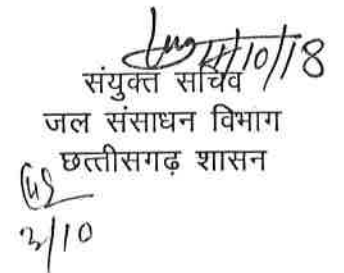 4/10/18
संयुक्त सचिव
जल संसाधन विभाग
छत्तीसगढ़ शासन
3/10